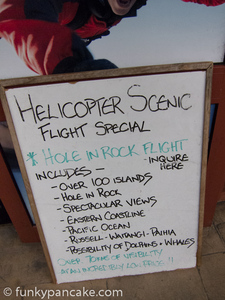 HELICOPTER SCENIC
FLIGHT SPECIAL
* HOLE IN ROCK FLIGHT
INCLUDES -
- INQUIRE
HERE
- OVER 100 ISLANDS
- HOLE IN ROCK
- SPECTACULAR VIEWS
- EASTERN COASTLINE
- PACIFIC OCEAN
- RUSSELL - WAITANGI - PAIHIA
- POSSIBILITY OF DOLPHINS + WHALES
OVER 70KMS OF VISIBILITY
AT AN INCREDIBLY LOW PRICE!!
© funkypancake.com